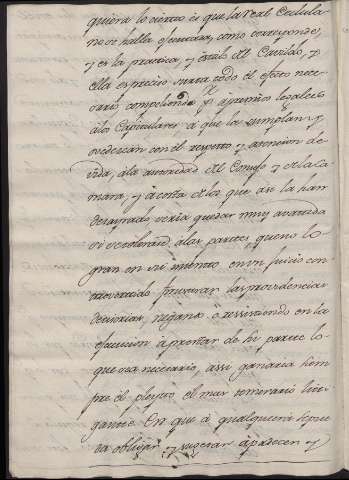 quiera lo cierto es que la real Cedula
no se halla executada, como corresponde,
y es la practica, y estilo del Cavildo, y
ella es preciso surta todo el efecto nece
sario compeliendo pr. apremios legales
a los Capitulares, a que la cumplan y
obedescan con el respeto y atencion de
vida, a la autoridad del Consejo y de la Ca
mara, y a costa de los que asi la han
desayrado seria quedar muy
si se tolerara, a las partes, que no lo
gran en su intento en un Juicio con
trovertido frustrar las providencias
decisivas, negando o resistiendo en la
execucion aprontar de su parte lo
que sea necesario, assi ganaria siem
pre el pleyto el mas temerario liti
gante. En que a qualquiera se pue
da obligar y a parecer y